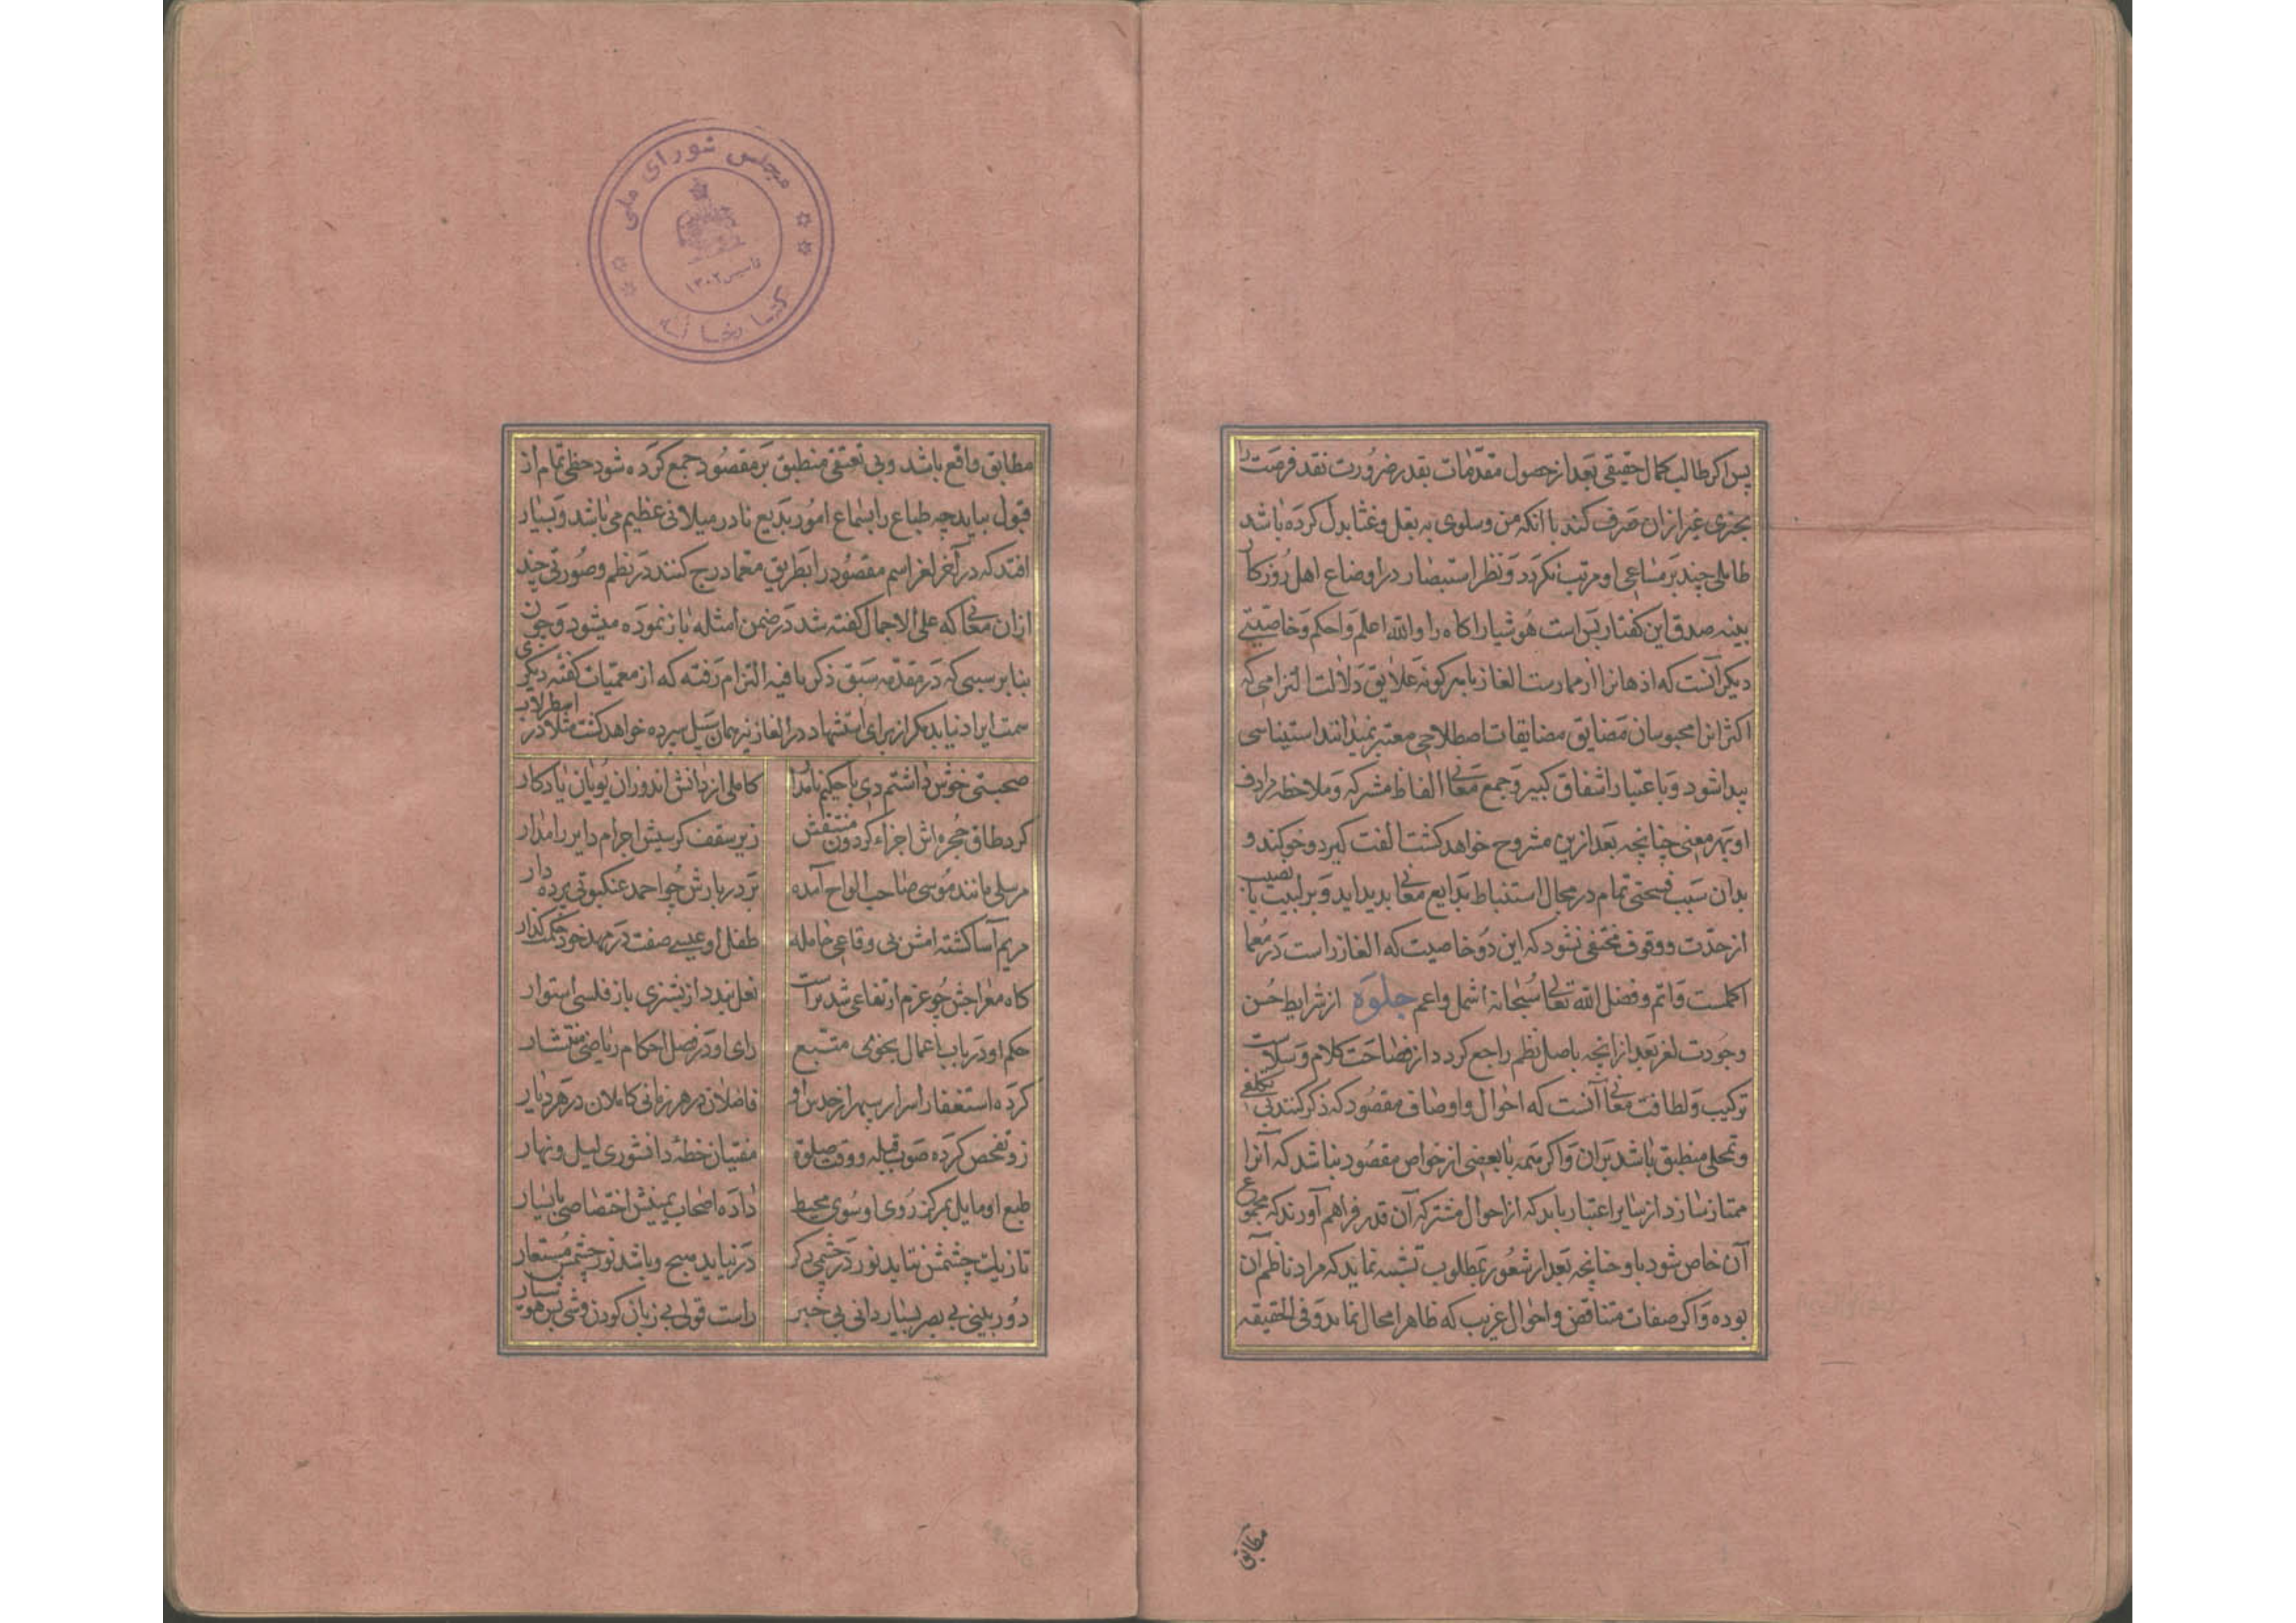 پس اگر طالب کمال حقیقی بعد از حصول مقدمات بقدر ضرورت نقد فرصت را
بچیزی غیر از ان صرف کند با انکه من و سلوی به بقل و غثا بدل کرده باشد
طایلی چند بر مساعی او مرتب نکردد و نظر استبصار در اوضاع اهل روزکار
بینه صدق این کفتار بس است هوشیار اکاه را والله اعلم و احکم و خاصیتی
دیکر آنست که اذهانرا از ممارست الغاز بهر کونه علایق دلالت التزامی که
اکثر انرا محبوسان مضایق مضایقات اصطلاحی معتبر نمیدانند استیناسی
پیدا شود و باعتبار اشقاق کبیر و جمع معانی الفاظ مشرکه و ملاحظه مرادف
او بهر معنی چنانچه بعد ازین مشروح خواهد کشت الفت کیرد و خو کند و
بدان سبب فسحتی تمام در مجال استنباط بدایع معانی بدید اید و بر لبیب با نصیب
از حدت و وقوف مختفی نشود که این دو خاصیت که الغاز راست در معما
اکملست و اتم و فضل الله تعالی سبحانه اشمل و اعم جلوه از شرایط حسن
وجودت لغز بعد از انچه باصل نظم راجع کردد از فصاحت کلام و سلاست
ترکیب و لطافت معانی آنست که احوال و اوصاف مقصود که ذکر کنند بی تکلفی
و تمحلی منطبق باشد بران و اکر متمه با بعضی از خواص مقصود نباشد که آنرا
ممتاز سازد از سایر اعتبار باید که از احوال مشترکه آن قدر فراهم آورند که مجموع
آن خاص شود باو چنانچه بعد از شعور بمطلوب تشبیه نماید که مراد ناظم آن
بوده و اکر صفات متناقض و احوال غریب که ظاهرا محال نماید و فی الحقیقه
مطابق
مجلس شورای ملی
تاسیس ۱۳۰۲
کتابخانه
مطابق واقع باشد و بی تعسفی منطبق بر مقصود جمع کرده شود حظی تمام از
قبول بیابد چه طباع را بسماع امور بدیع نادر میلانی عظیم می باشد و بسیار
افتد که در آخر لغز اسم مقصود را بطریق معما درج کنند در نظم و صورتی چند
ازان معانی که علی الاجمال کفته شد در ضمن امثله باز نموده میشود و چون
بنا بر سببی که در مقدمه سبق ذکر یافته التزام رفته که از معمیات کفته دیکری
سمت ایراد نیابد مکر از برای استشهاد در الغاز نیز همان سبیل سپرده خواهد کشت مثلا در اسطرلاب
صحبتی خوش داشتم دی با حکیم نامدار کاملی از دانش اندوزان یونان یادکار
کرد طاق حجره اش اجزاء کردون منتقش زیر سقف کرسیش اجرام دایر را مدار
مرسلی مانند موسی صاحب الواح آمده بر در بارش چو احمد عنکبوتی پرده دار
مریم آسا کشته امش بی وقاعی حامله طفل او عیسی صفت در مهد خود حکمت کذار
کاه معراجش چو عزم ارتفاعی شد براست نعل بندد از بشیزی باز فلسی استوار
حکم او در باب اعمال نجومی متبع رای او در فصل احکام ریاضی مستشار
کرده استغفار اسرار سپهر از جدس او فاضلان در هر زمانی کاملان در هر دیار
زو تفحص کرده صوب قبله و وقت صلوة مفتیان خطه دانشوری لیل و نهار
طبع او مایل بمرکز روی او سوی محیط داده اصحاب یمینش اختصاصی با یسار
تا ز یک چشمش نتابد نور در چشمی دکر در نیاید مسح و باشد نور چشمش مستعار
دور بینی بی بصر بسیار دانی بی خبر راست قولی بی زبان کردن